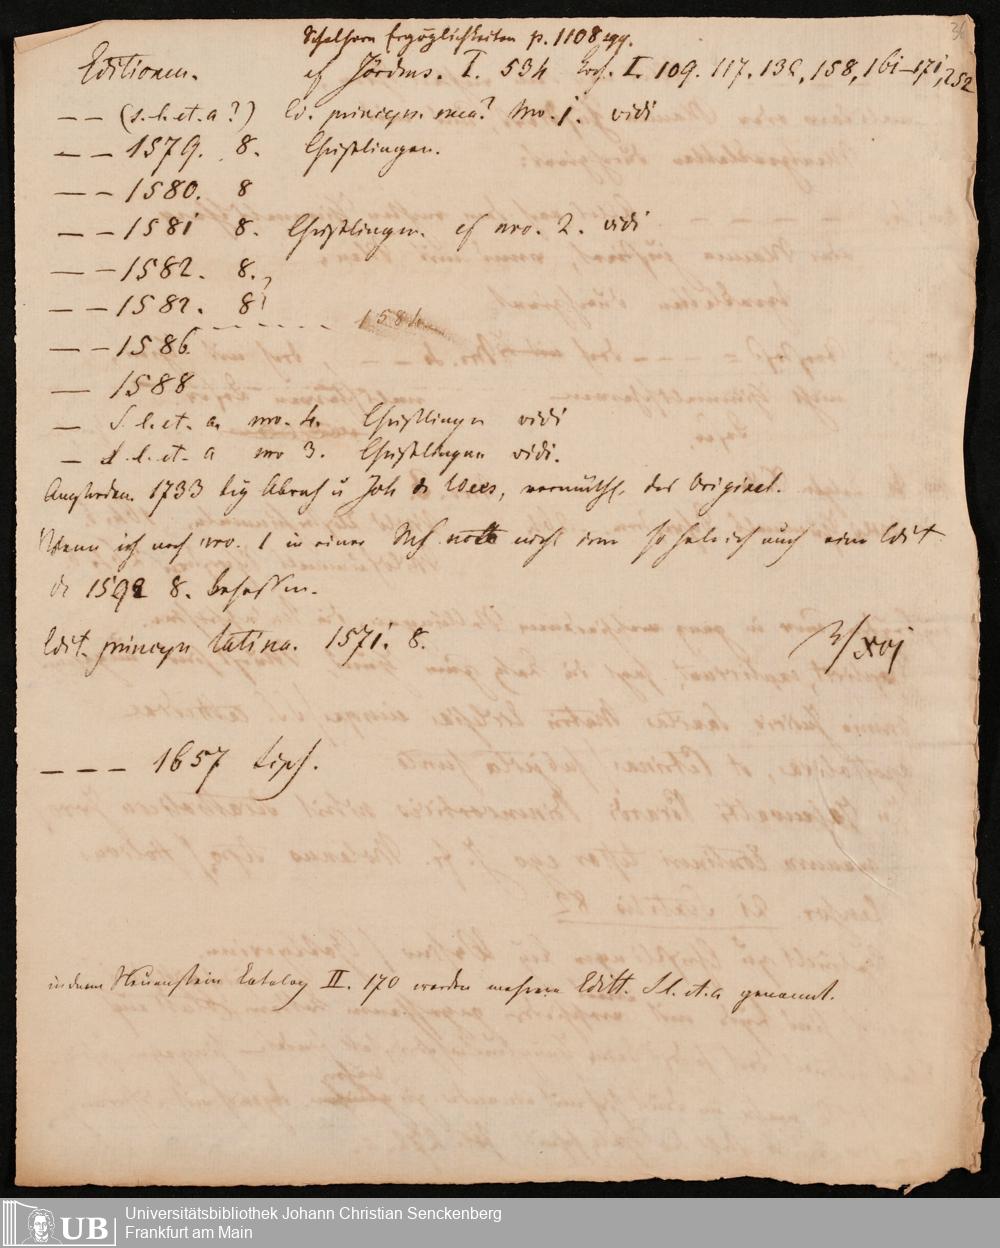 36
Schelhorn Ergözlichkeiten p. 1108 sqq.
Editionen. cf Jördens. I. 534 I. 109. 117. 136, 158, 161–171, 252
— — (s. l. et. a?) Ed. princeps. mea? Nro. 1. vidi
— — 1579. 8. Christlingen.
— — 1580. 8
— — 1581 8. Christlingen. cf nro. 2. vidi
— — 1582. 8.
— — 1582. 8
1584
— — 1586
— 1588
— S. l. et. a. nro. 4. Christlingen vidi
— S. l. et. a nro 3. Christlingen vidi.
Amsterdam. 1733 Abrah u Joh de Wees, vermuthl. das Original.
Wenn ich nach nro. 1 in einer nicht irre so habe ich auch eine Edit
de 1592 8. besessen.
Edit. princeps latina. 1571. 8.
— — — 1657 Lips.
in dem Neuenstein Catalog II. 170 werden mehrere Editt. S. l. et. a genannt.
UB
Universitätsbibliothek Johann Christian Senckenberg
Frankfurt am Main